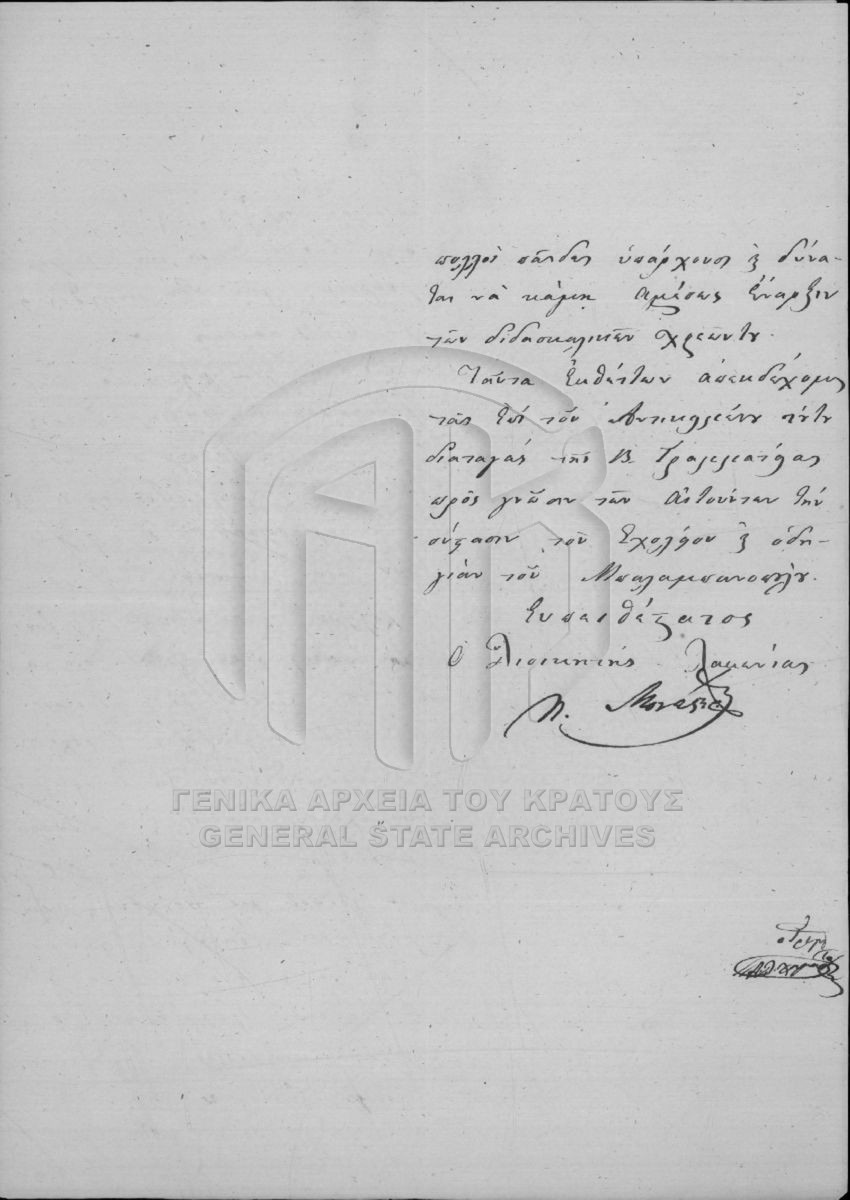 πολλοί παίδες υπάρχουσι & δύνα-
ται νὰ κάμῃ ἀμέσως ἔναρξιν
τῶν διδασκαλικῶν χρεῶν του.
Ταῦτα ἐκθέτων ἀπεκδέχομαι
τὰς ἐπὶ τοῦ ἀντικειμένου τούτου
διαταγὰς τῆς Β. Γραμματείας
πρὸς γνῶσιν τῶν αἰτούντων τὴν
σύστασιν τοῦ Σχολείου & ὁδη-
γίαν τοῦ Μπαλαμπανοπούλου.
Εὐπειθέστατος
Ὁ Διοικητής Λακωνίας
ΓΕΝΙΚΑ ΑΡΧΕΙΑ ΤΟΥ ΚΡΑΤΟΥΣ
GENERAL STATE ARCHIVES